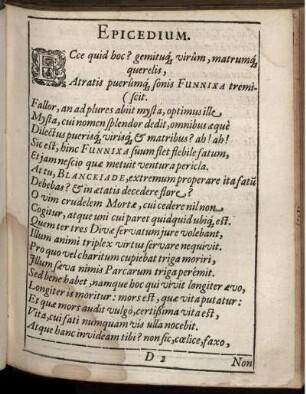 EPICEDIUM.
ECce quid hoc? gemituq́, virûm, matrumq́,
querelis,
Atratis puerûmq́, sonis FUNNIXA tremi-
(scit.
Fallor, an ad plures abiit mysta, optimus ille
Mysta, cui nomen splendor dedit, omnibus æquè
Dilectus puerisq́, virisq́, & matribus? ah! ah!
Sic est, hinc FUNNIXA suum flet flebile fatum,
Et jam nescio quæ metuit ventura pericla.
At tu, BLANCKIADE, extremum properare ita fatũ
Debebas? & in ætatis decedere flore?
O vim crudelem Mortæ, cui cedere nil non
Cogitur, atque uni cui paret quidquid ubiq́, est.
Quem ter tres Divæ servatum jure volebant,
Illum animi triplex virtus servare nequivit.
Pro quo vel charitum cupiebat triga moriri,
Illum sæva nimis Parcarum triga perêmit.
Sed bene habet, namque hoc qui vivit longiter ævo,
Longiter is moritur: mors est, quæ vita putatur:
Et quæ mors audit vulgò, certissima vita est,
Vita, cui fati numquam vis ulla nocebit.
Atque hanc invideam tibi? non sic, cœlice, faxo,
D 2
Non